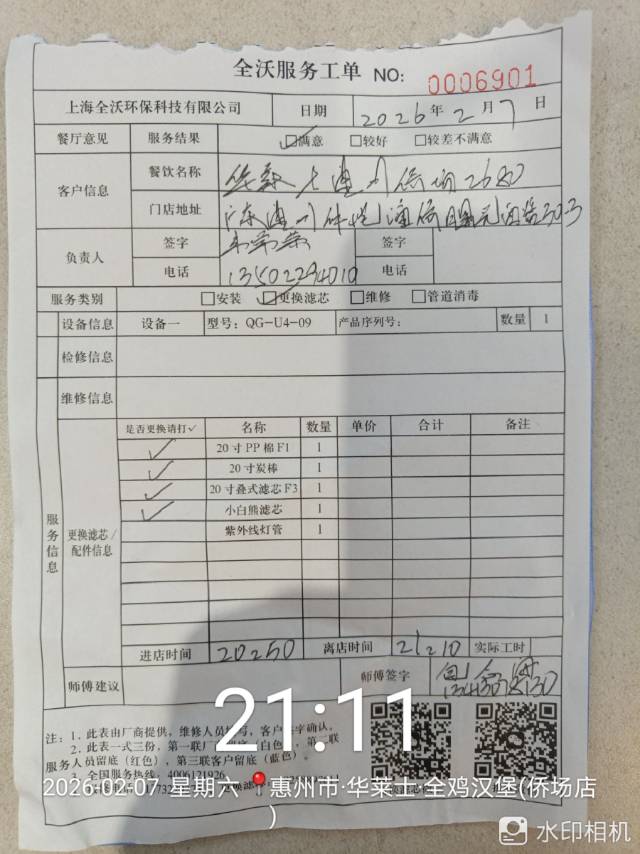 全沃服务工单 NO: 0006901
上海全沃环保科技有限公司 日期 2026年2月7日
餐厅意见 服务结果 ☑满意 □较好 □较差不满意
客户信息 餐饮名称 华莱士惠州侨场2680
门店地址 广东惠州
负责人 签字 签字
电话 13502294010 电话
服务类别 □安装 ☑更换滤芯 □维修 □管道消毒
设备信息 设备一 型号：QG-U4-09 产品序列号： 数量 1
检修信息
维修信息
服务信息
更换滤芯/配件信息
是否更换请打✓ 名称 数量 单价 合计 备注
✓ 20寸PP棉F1 1
✓ 20寸炭棒 1
✓ 20寸叠式滤芯F3 1
✓ 小白熊滤芯 1
紫外线灯管 1
进店时间 20:50 离店时间 21:10 实际工时
师傅建议 师傅签字
注：1、此表由厂商提供，维修人员填写，客户签字确认。
2、此表一式三份，第一联厂 （白色），第二联
服务人员留底（红色），第三联客户留底（蓝色）。
3、全国服务热线：4006121926
21:11
2026-02-07 星期六 惠州市·华莱士·全鸡汉堡(侨场店
)
水印相机